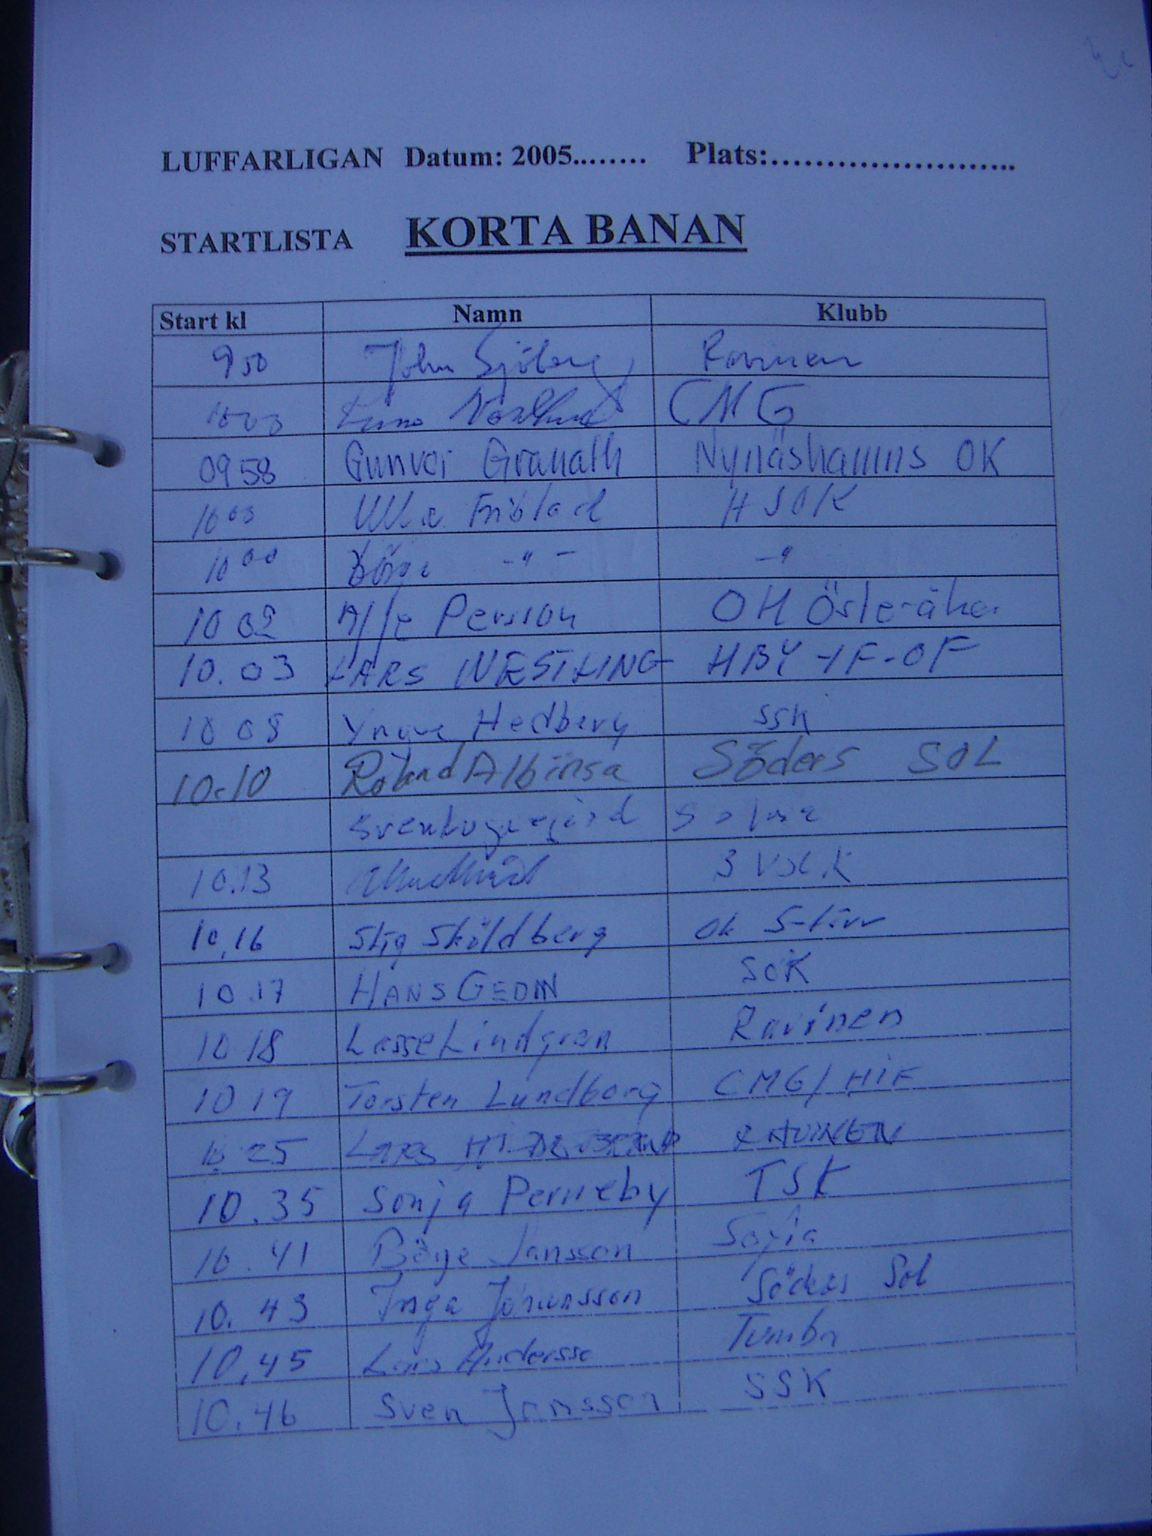 LUFFARLIGAN Datum: 2005........ Plats:........................
STARTLISTA KORTA BANAN
Start kl Namn Klubb
950 John Sjöberg
CMG
0958 Gunvor Granath Nynäshamns OK
1003 Ulla Fröblad HSOK
1000 Börje -"- -"-
10 02 Alfe Persson OH Österåker
10.03 LARS WESTLING HBY IF-OF
10 08 Yngve Hedberg SSK
10.10 Roland Albinsa Söders SOL
Solna
10.13
10,16 Stig Sköldberg OK
10.17 HANS GEDIN SOK
10 18 Lasse Lindgren Ravinen
10 19 Torsten Lundborg CMG/HIF
10 25 LARS RAVINEN
10.35 Sonja Perneby TSK
10.41 Börje Jansson Sofia
10.43 Inga Johansson Söders Sol
10,45 Lars Andersso Tumba
10.46 Sven Jansson SSK